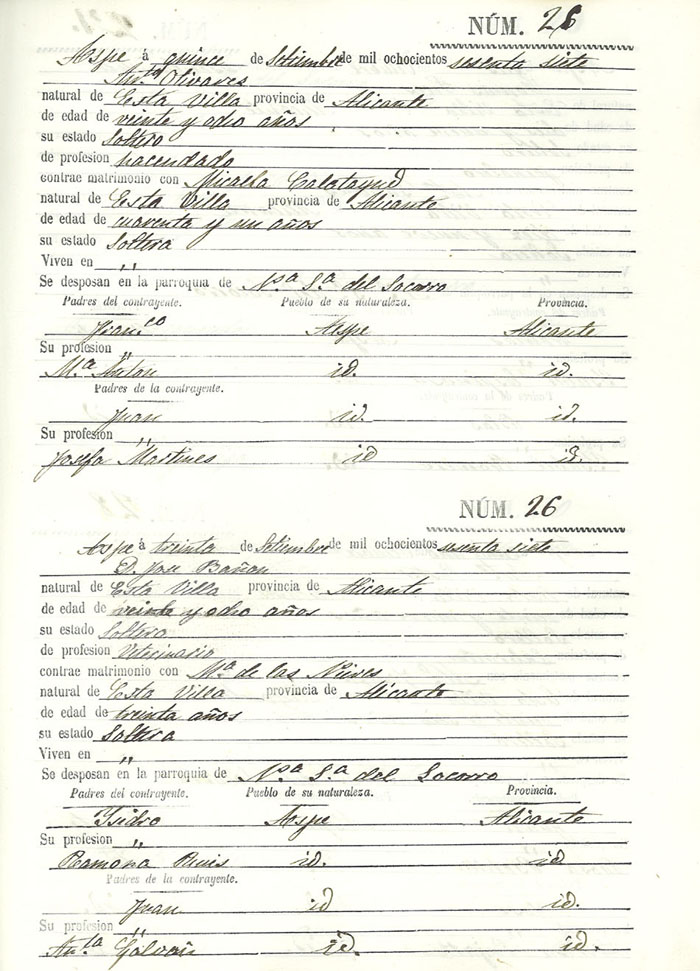 NÚM. 26
Aspe á quince de Setiembre de mil ochocientos sesenta siete
Antº Olivares
natural de Esta Villa provincia de Alicante
de edad de veinte y ocho años
su estado Soltero
de profesion hacendado
contrae matrimonio con Micaela Calatayud
natural de Esta Villa provincia de Alicante
de edad de cuarenta y un años
su estado Soltera
Viven en "
Se desposan en la parroquia de Nª Sª del Socorro
Padres del contrayente. Pueblo de su naturaleza. Provincia.
Franco Aspe Alicante
Su profesion "
Mª Anton id. id.
Padres de la contrayente.
Juan id. id.
Su profesion "
Josefa Martines id id.
NÚM. 26
Aspe á treinta de Setiembre de mil ochocientos sesenta siete
D. Jose Bañon
natural de Esta Villa provincia de Alicante
de edad de veinte y ocho años
su estado Soltero
de profesion Veterinario
contrae matrimonio con Mª de las Nieves
natural de Esta Villa provincia de Alicante
de edad de treinta años
su estado Soltera
Viven en "
Se desposan en la parroquia de Nª Sª del Socorro
Padres del contrayente. Pueblo de su naturaleza. Provincia.
Isidro Aspe Alicante
Su profesion "
Ramona id. id
Padres de la contrayente.
Juan id id.
Su profesion "
Anta Galvañ id. id.